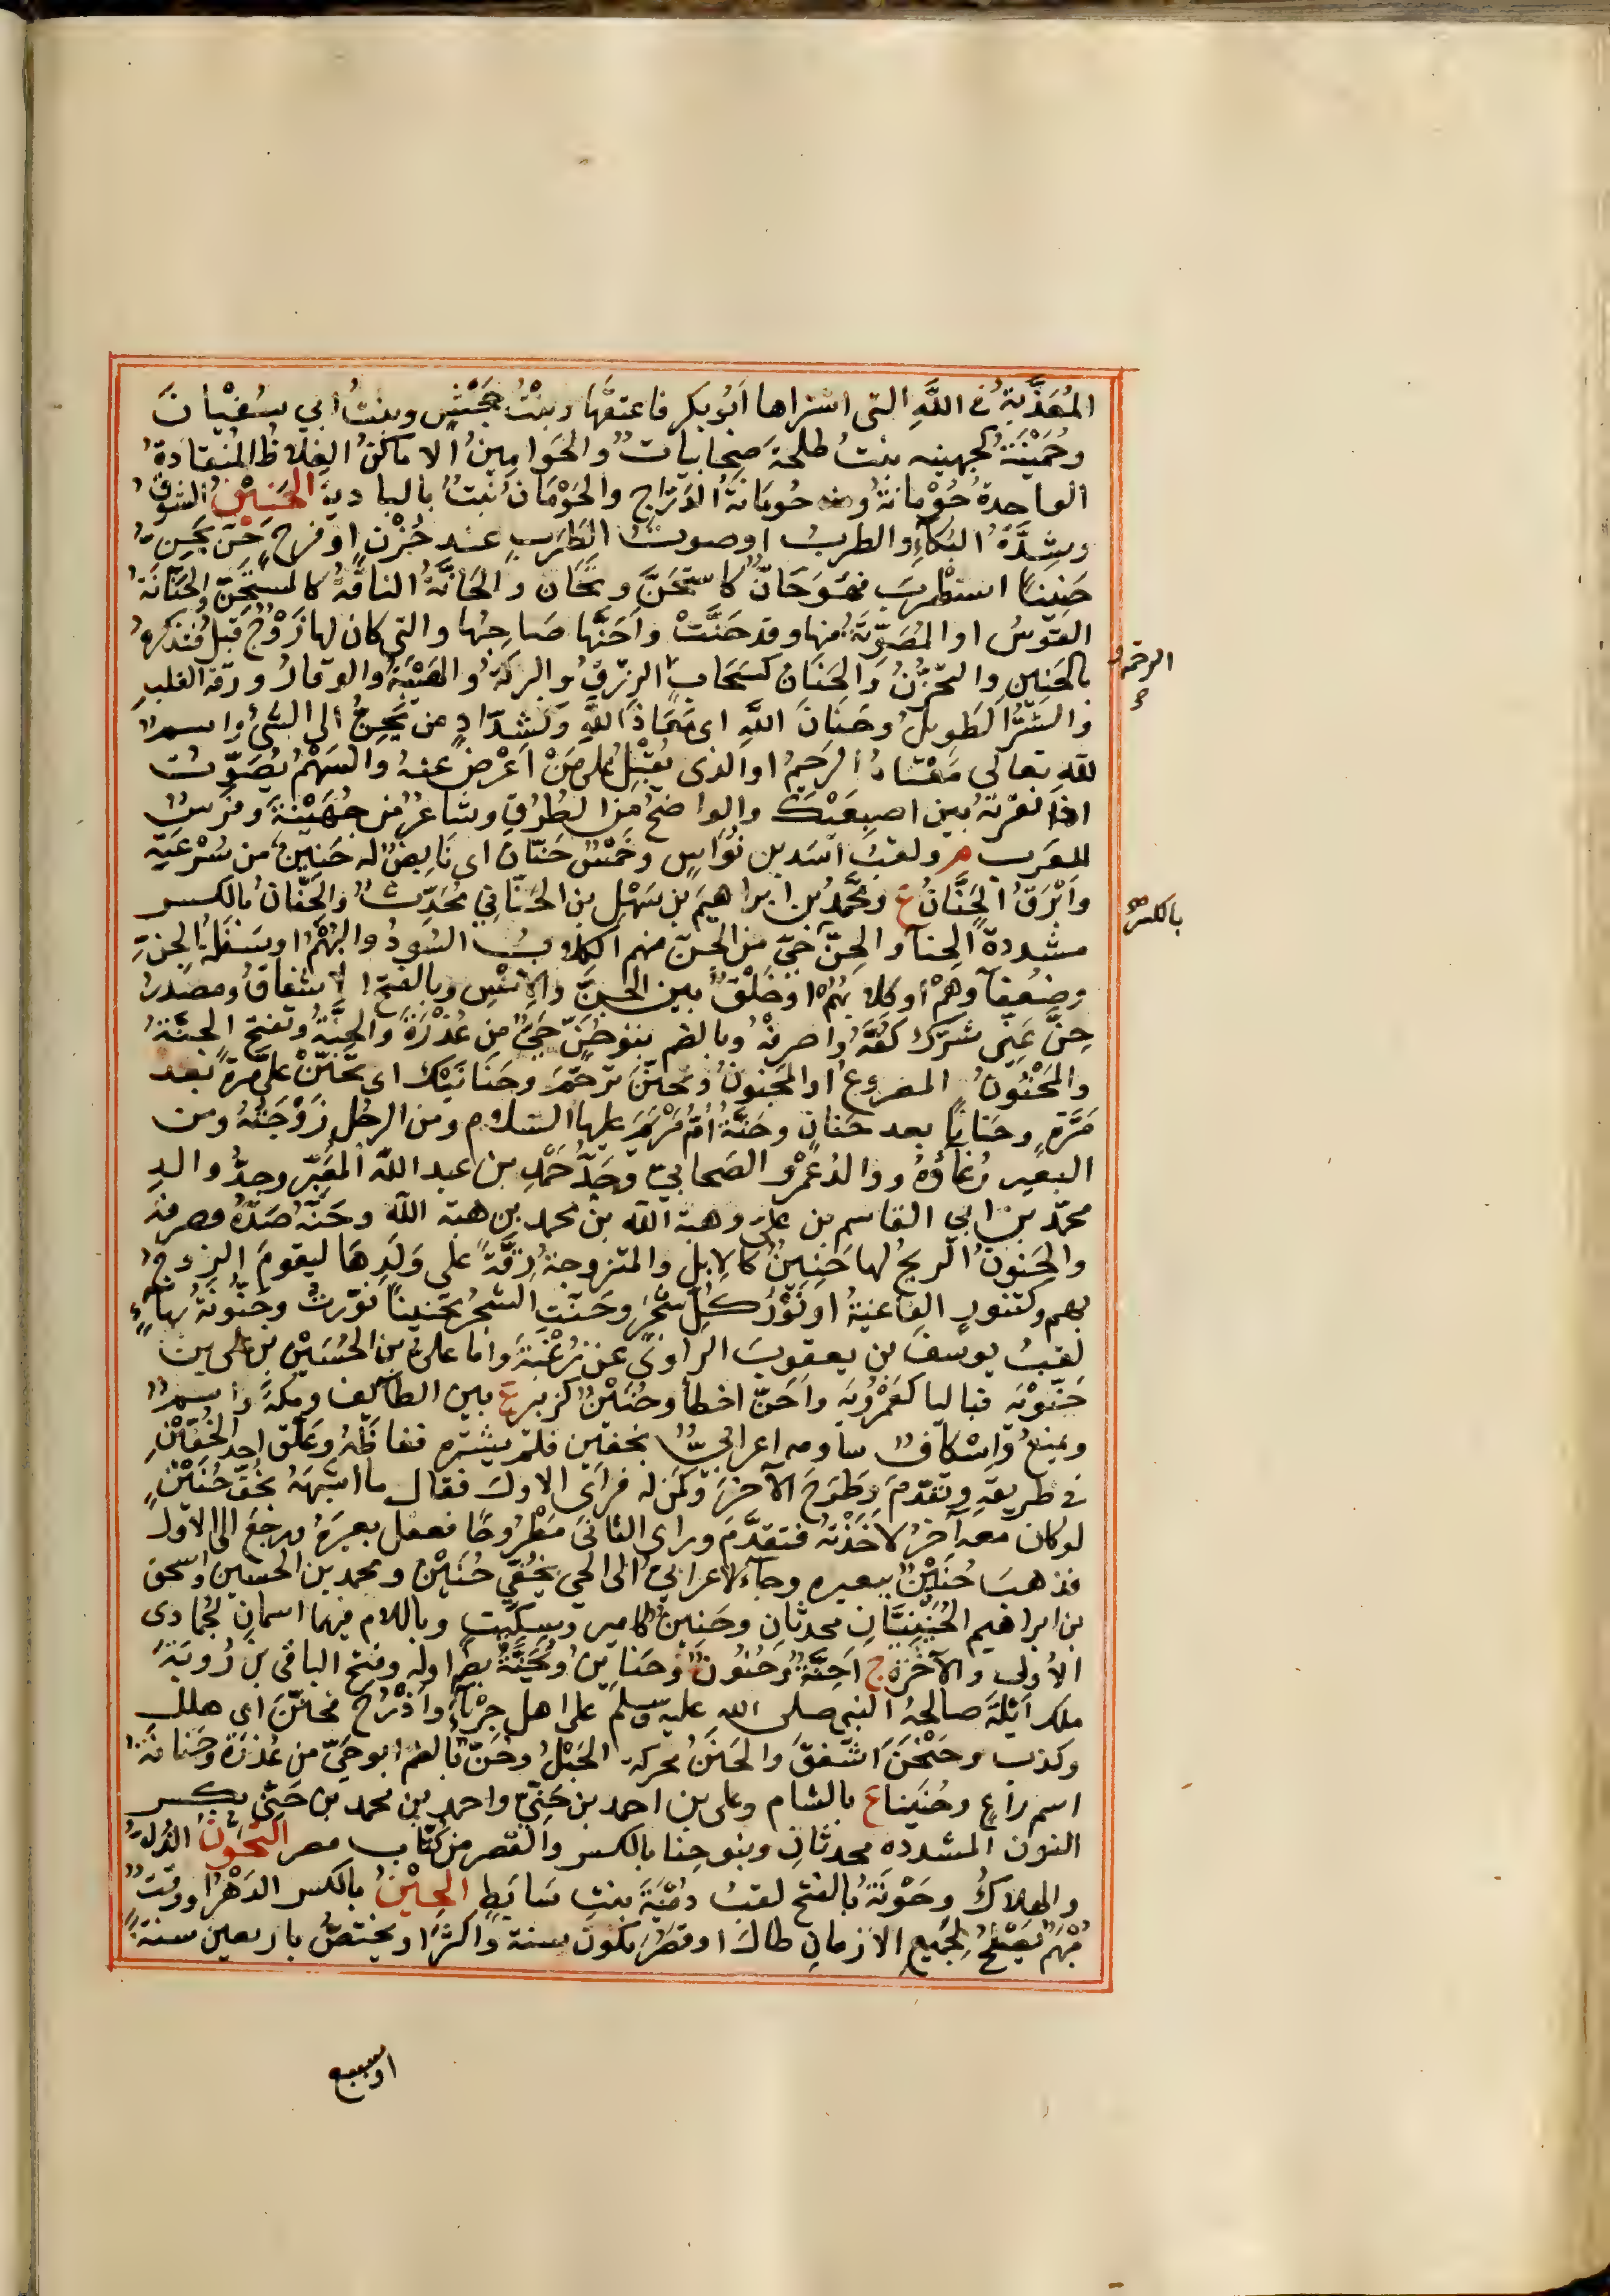 المُعَذَّبَةُ في اللَّهِ التى اشتراها اَبُوبكر فاعتقَها وبنْتُ جَحْشٍ وبنتُ ابي سُفْيانَ
وحُمَيْنَةُ كجهينه بنتُ طلحةَ صَحابيات والحَوامِينُ الاماكنُ الغِلاظُ المُنقادَةُ
الواحدةُ حَوْمانَةٌ ومنه حومانَةُ الدَرّاجِ والحَوْمَانُ نَبتٌ بالباديةِ الحَنِيْنُ الشوقُ
وشِدَّةُ البُكآءِ والطربُ اوصوتُ الطَرَبِ عند حُزْنٍ اوفرحٍ حَنَّ يَحِنُّ
حَنِينًا استطْرَبَ فهُوَحَانٌّ كاستَحَنَّ وتَحَانَّ والحَانَّةُ الناقَةُ كالمستَحِنّ والحَنّانَةُ
القَوْسُ اوالمُصَوِّتَةُ منها وقدحَنَّتْ واَحَنَّها صَاحِبُها والتى كان لها زَوْجٌ قبلُ فتذكرهُ
بالحَنِينِ والتحزّنُ والحَنَانُ كسَحَابٍ الرِزْقُ والبركةُ والهَيْبَةُ والوقارُ ورقّة القلبِ
والشَرُّ الطَويلُ وحَنَانَ اللَّهِ اى مَعَاذَ اللَّهِ وكشدّادٍ من يَحِنُّ الى الشئِ واسمٌ
للّهِ تعالى مَعْناهُ الرحيمُ اوالذى يُقْبِلُ على مَنْ اَعْرَضَ عنهُ والسَهْمُ يُصَوِّت
اذا نقرتَهُ بين اصبِعَيْكَ والواضحُ من الطُرُقِ وشاعرٌ من جُهَيْنَةَ وفَرسٌ
للعَرب م ولقبُ اَسَدبن نُوَاسٍ وخَمْسٌ حَنّانٌ اى بَايصٌ له حَنِينٌ من سُرْعَتِهِ
واَبْرَقُ الحَنَّانُ ع ومحَمَّدُ بن ابراهيمَ بن سَهْلٍ بن الحَنّاني مُحَدِّثٌ والحِنّانُ بالكسر
مشددةً الحِنآء والحِنّ حَيّ من الجنّ منهم الكلاب السُودُ البُهْمُ اوسَفَلَةُ الجنّ
وضعفآؤهُمْ اوكلابُهُمْ اوخَلْقٌ بين الجنّ والانْسِ وبالفتح الاشفاقُ ومصدرُ
حِنَّ عَنِّى شرّك كُفَّهُ واصرفْهُ وبالضم بنوحُنّ حَيٌّ من عُذْرَةَ والحِنَّةُ وتفتح الجِنّةُ
والمَحْنُونُ المصروعُ اوالمَجنونُ وتحنّنَ ترحّمَ وحَنَانَيْكَ اى تَحَنّنْ علىَّ مرّةً بعد
مَرَّةٍ وحنانًا بعد حَنانٍ وحَنَّةُ اُمُّ مَرْيَمَ عليها السلام ومن الرجُلِ زَوْجَتُهُ ومن
البعيرِ رُغاؤُهُ ووالدُعَمْرٍو الصَحابيّ وجَدُّ حَمْدِ بن عبد اللّه المُعَبِّرِ وجدُّ والدِ
محمّد بن ابي القاسم بن علىّ وهبة اللّه بن محمد بن هبة اللّه وحَنَّهُ صَدَّهُ وصرفهُ
والحَنونُ الريحُ لها حَنِينٌ كالابِلِ والمتزوجةُ رِقَّةً على وَلَدِهَا ليقومَ الزوجُ
بهم وكتنورٍ الفاغيَةُ اونَوْرُ كلّ شجَرٍ وحَنّنَ الشجرُ تحنينًا نوّرتْ وحَنُّونَةُ بهآءٍ
لقبُ يوسفَ بن يعقوبَ الراوي عن زُغْبَةَ واما علىُّ بن الحُسَيْنِ بن على بن
حَنّويْه فبالياء كعَمْرُويَه واَحَنّ اخطأ وحُنَيْنٌ كزبير ع بين الطائف ومكة واسمٌ
ويمنعُ واِسْكافٌ ساومه اعرابيٌّ بخفين فلم يشترِه فغاظَهُ وعلّق احدَ الخُفّيْنِ
فى طريقهِ وتقدّمَ وطَرَحَ الآخَرَ وكَمَنَ له فرأى الاولَ فقال ما اشبهَهُ بخُفّ حُنَيْنٍ
لوكان معه آخَرُ لاخَذْتُه فتقدَّمَ ورأى الثانىَ مَطْروحًا فعقل بعيرَهُ ورجعَ الى الاوَّل
فذهبَ حُنَيْنٌ ببعيره وجآء الاعرابيُّ الى الحي بِخُفَّي حُنَيْنٍ ومحمد بن الحسين واسحق
بن ابراهيم الحُنَيْنِيَّانِ محدثانِ وحَنِينٌ كامير وسِكّيتٍ وباللام فيهما اسمانِ لجُمادى
الأولى والآخرَة ج اَحِنَّةٌ وحُنُونٌ وحَنَائِنُ ويُحَنَّةُ بضم اوله وفتح الباقى بن رُوبَةَ
ملك اَيْلَةَ صالحهُ النبي صلى الله عليه وسلم على اهل جَرْبآءَ واَذْرُحَ وتَحانَّنَ اى هلل
وكذب وحَنْحَنَ اشفقَ والحَنَنُ محركة الجُعْلُ وحُنّ بالضم ابوحَيّ من عُذْرَةَ وحَنانَة
اسم راعٍ وحُنَيناء ع بالشام وعلى بن احمد بن حِنّيّ واحمد بن محمد بن حِنّيّ بكسر
النون المشدده محدثانِ وبنوحِنا بالكسر والقصر من كُتّابِ مصر التحَوُّنُ الذُلُّ
والهلاكُ وحَوْنَةُ بالفتح لقبُ دُمْيَةَ بنتِ سَابَطٍ الحِيْنُ بالكسر الدَهْرُ اووقتٌ
مُبْهَمٌ يَصْلُحُ لجَميعِ الازمانِ طالَ اوقصُرَ يكونُ سنة واكثَرَ اويختصُّ باربعين سنةً
الرحمة
بالكسر
اوسبع